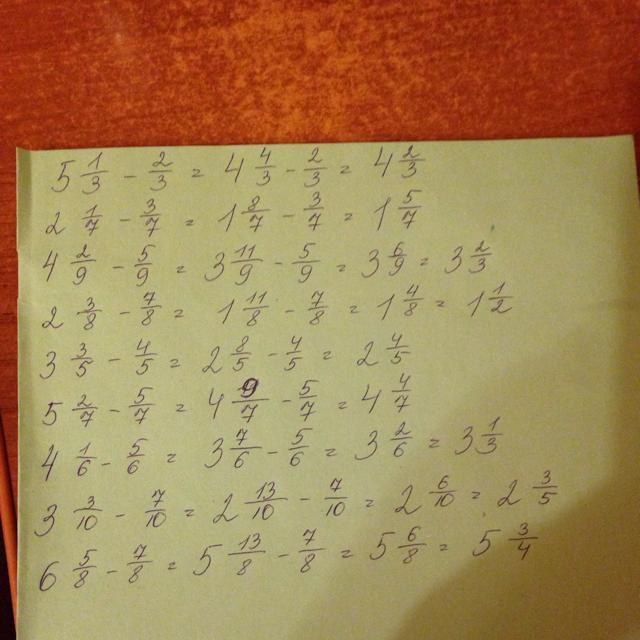 5 1/3 - 2/3 = 4 4/3 - 2/3 = 4 2/3
2 1/7 - 3/7 = 1 8/7 - 3/7 = 1 5/7
4 2/9 - 5/9 = 3 11/9 - 5/9 = 3 6/9 = 3 2/3
2 3/8 - 7/8 = 1 11/8 - 7/8 = 1 4/8 = 1 1/2
3 3/5 - 4/5 = 2 8/5 - 4/5 = 2 4/5
5 2/7 - 5/7 = 4 9/7 - 5/7 = 4 4/7
4 1/6 - 5/6 = 3 7/6 - 5/6 = 3 2/6 = 3 1/3
3 3/10 - 7/10 = 2 13/10 - 7/10 = 2 6/10 = 2 3/5
6 5/8 - 7/8 = 5 13/8 - 7/8 = 5 6/8 = 5 3/4